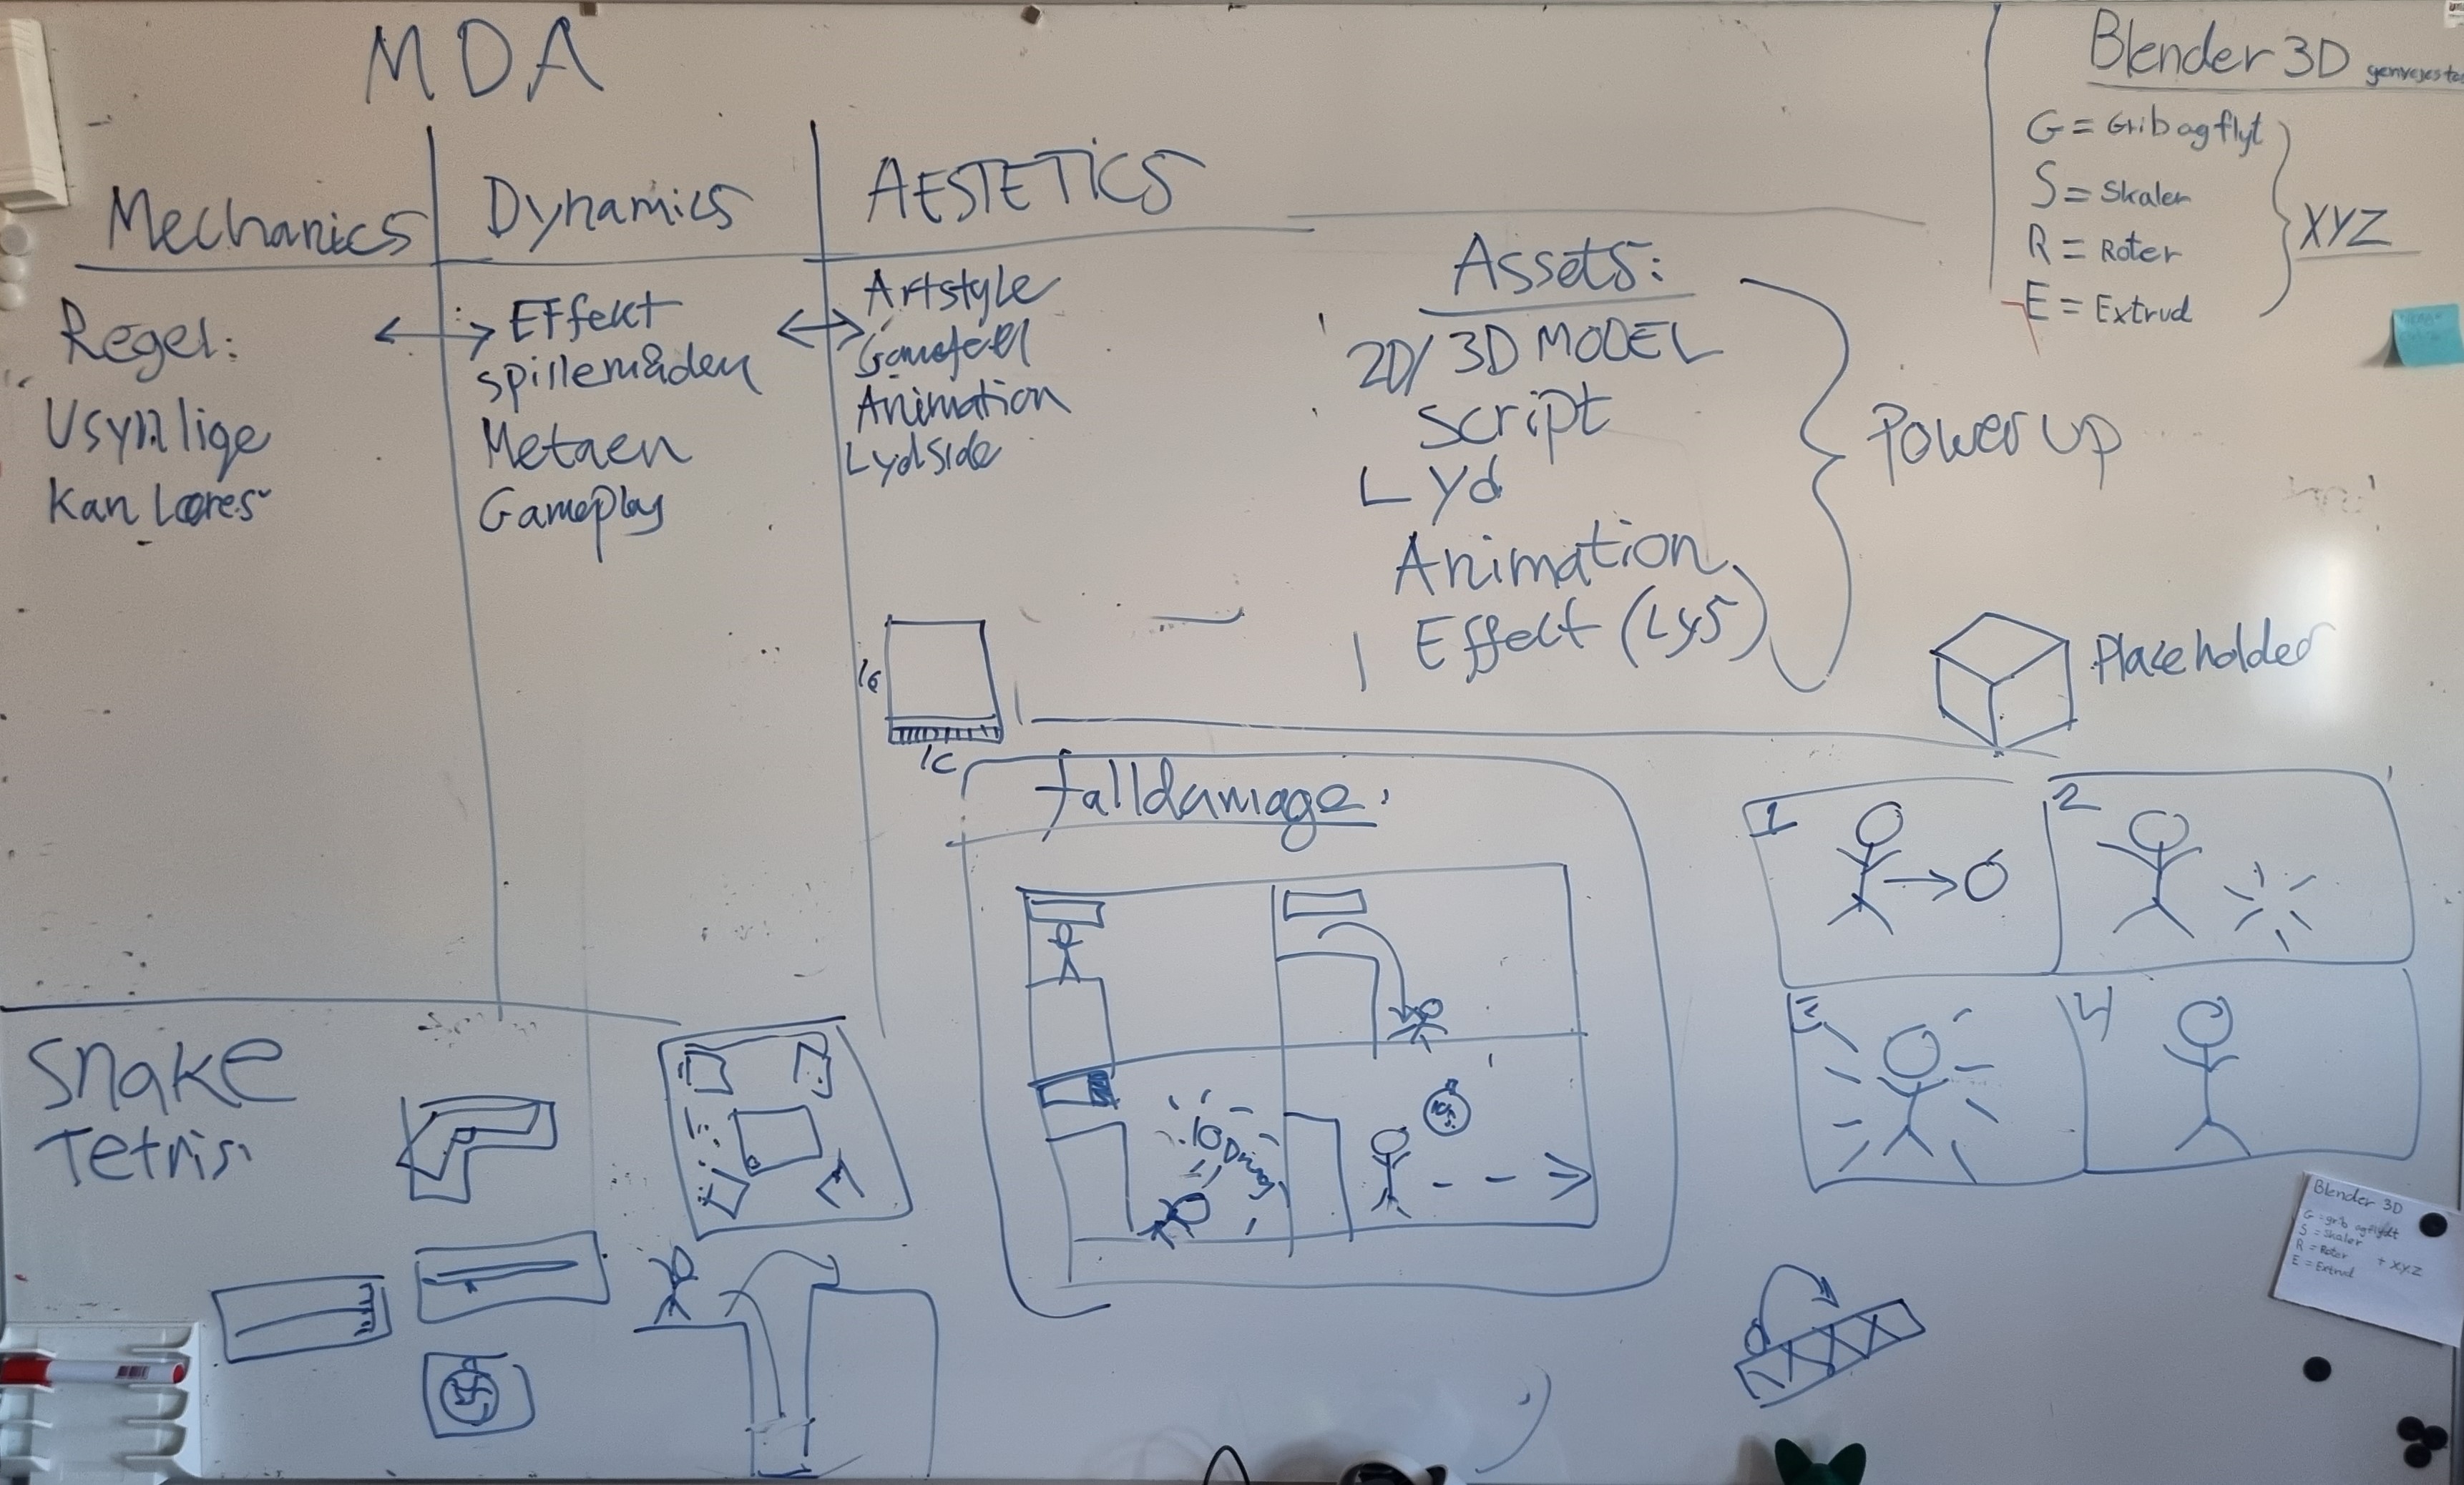 MDA
Mechanics
Dynamics
AESTETICS
Regel:
Usynlige
Kan Læres
Effekt
spillemåden
Metaen
Gameplay
Artstyle
Gamefeel
Animation
Lydside
Assets:
2D/3D MODEL
Script
Lyd
Animation
Effekt (Lys)
Power up
Blender 3D
G = Grib og flyt
S = Skaler
R = Roter
E = Extrud
XYZ
Placeholder
falldamage:
1
2
3
4
Snake
Tetris
Blender 3D
G = grib og flydt
S = Skaler
R = Roter
E = Extrud
+ XYZ